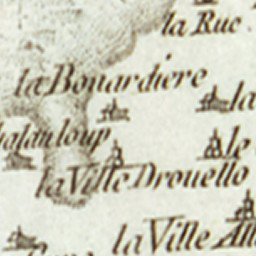 la Rue
la Bouardiere
la
halauloup
le
la Ville Drouello
la Ville All